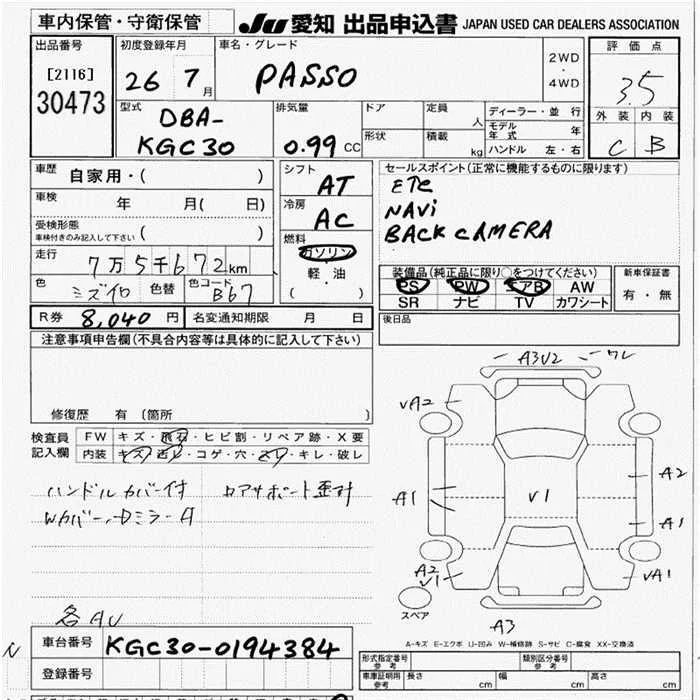 車内保管・守衛保管
JU 愛知 出品申込書 JAPAN USED CAR DEALERS ASSOCIATION
出品番号
[2116]
30473
初度登録年月
26 7 月
車名・グレード
PASSO
2WD
・
4WD
評価点
3.5
外装 内装
C B
型式
DBA-
KGC30
排気量
0.99 CC
ドア
形状
定員 人
積載 kg
ディーラー・並行
モデル年式 年
ハンドル 左・右
車歴 自家用・( )
車検 年 月( 日)
受検形態
車検付きのみ記入して下さい ( )
走行 7万5千672km
色 ミズイロ 色替 色コード B67
シフト
AT
冷房
AC
燃料
ガソリン
・
軽・油
( )
セールスポイント(正常に機能するものに限ります)
ETC
NAVi
BACK CAMERA
装備品(純正品に限り○をつけてください)
PS PW エアB AW
SR ナビ TV カワシート
新車保証書
有・無
R券 8,040 円 名変通知期限 月 日
後日品
注意事項申告欄(不具合内容等は具体的に記入して下さい)
修復歴 有 〔箇所 〕
検査員
記入欄
FW キズ・飛石・ヒビ割・リペア跡・X要
内装 キズ・汚レ・コゲ・穴・スレ・キレ・破レ
ハンドルカバー付 ロアサポート歪ミ
各AU
A3V2 ワレ
VA2
A1
V1
A2
A1
A2
V1
VA1
A3
スペア
A-キズ E-エクボ U-凹み W-補修跡 S-サビ C-腐食 XX-交換済
車台番号 KGC30-0194384
登録番号
形式指定番号
参考
類別区分番号
参考
車庫証明用
参考
長さ cm 幅 cm 高さ cm